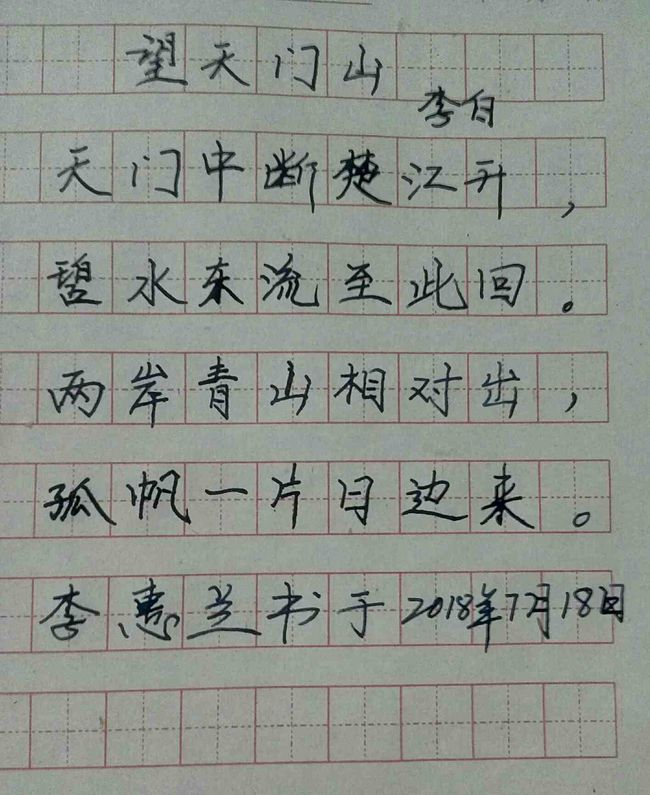 望天门山
李白
天门中断楚江开，
碧水东流至此回。
两岸青山相对出，
孤帆一片日边来。
李惠兰书于2018年7月18日